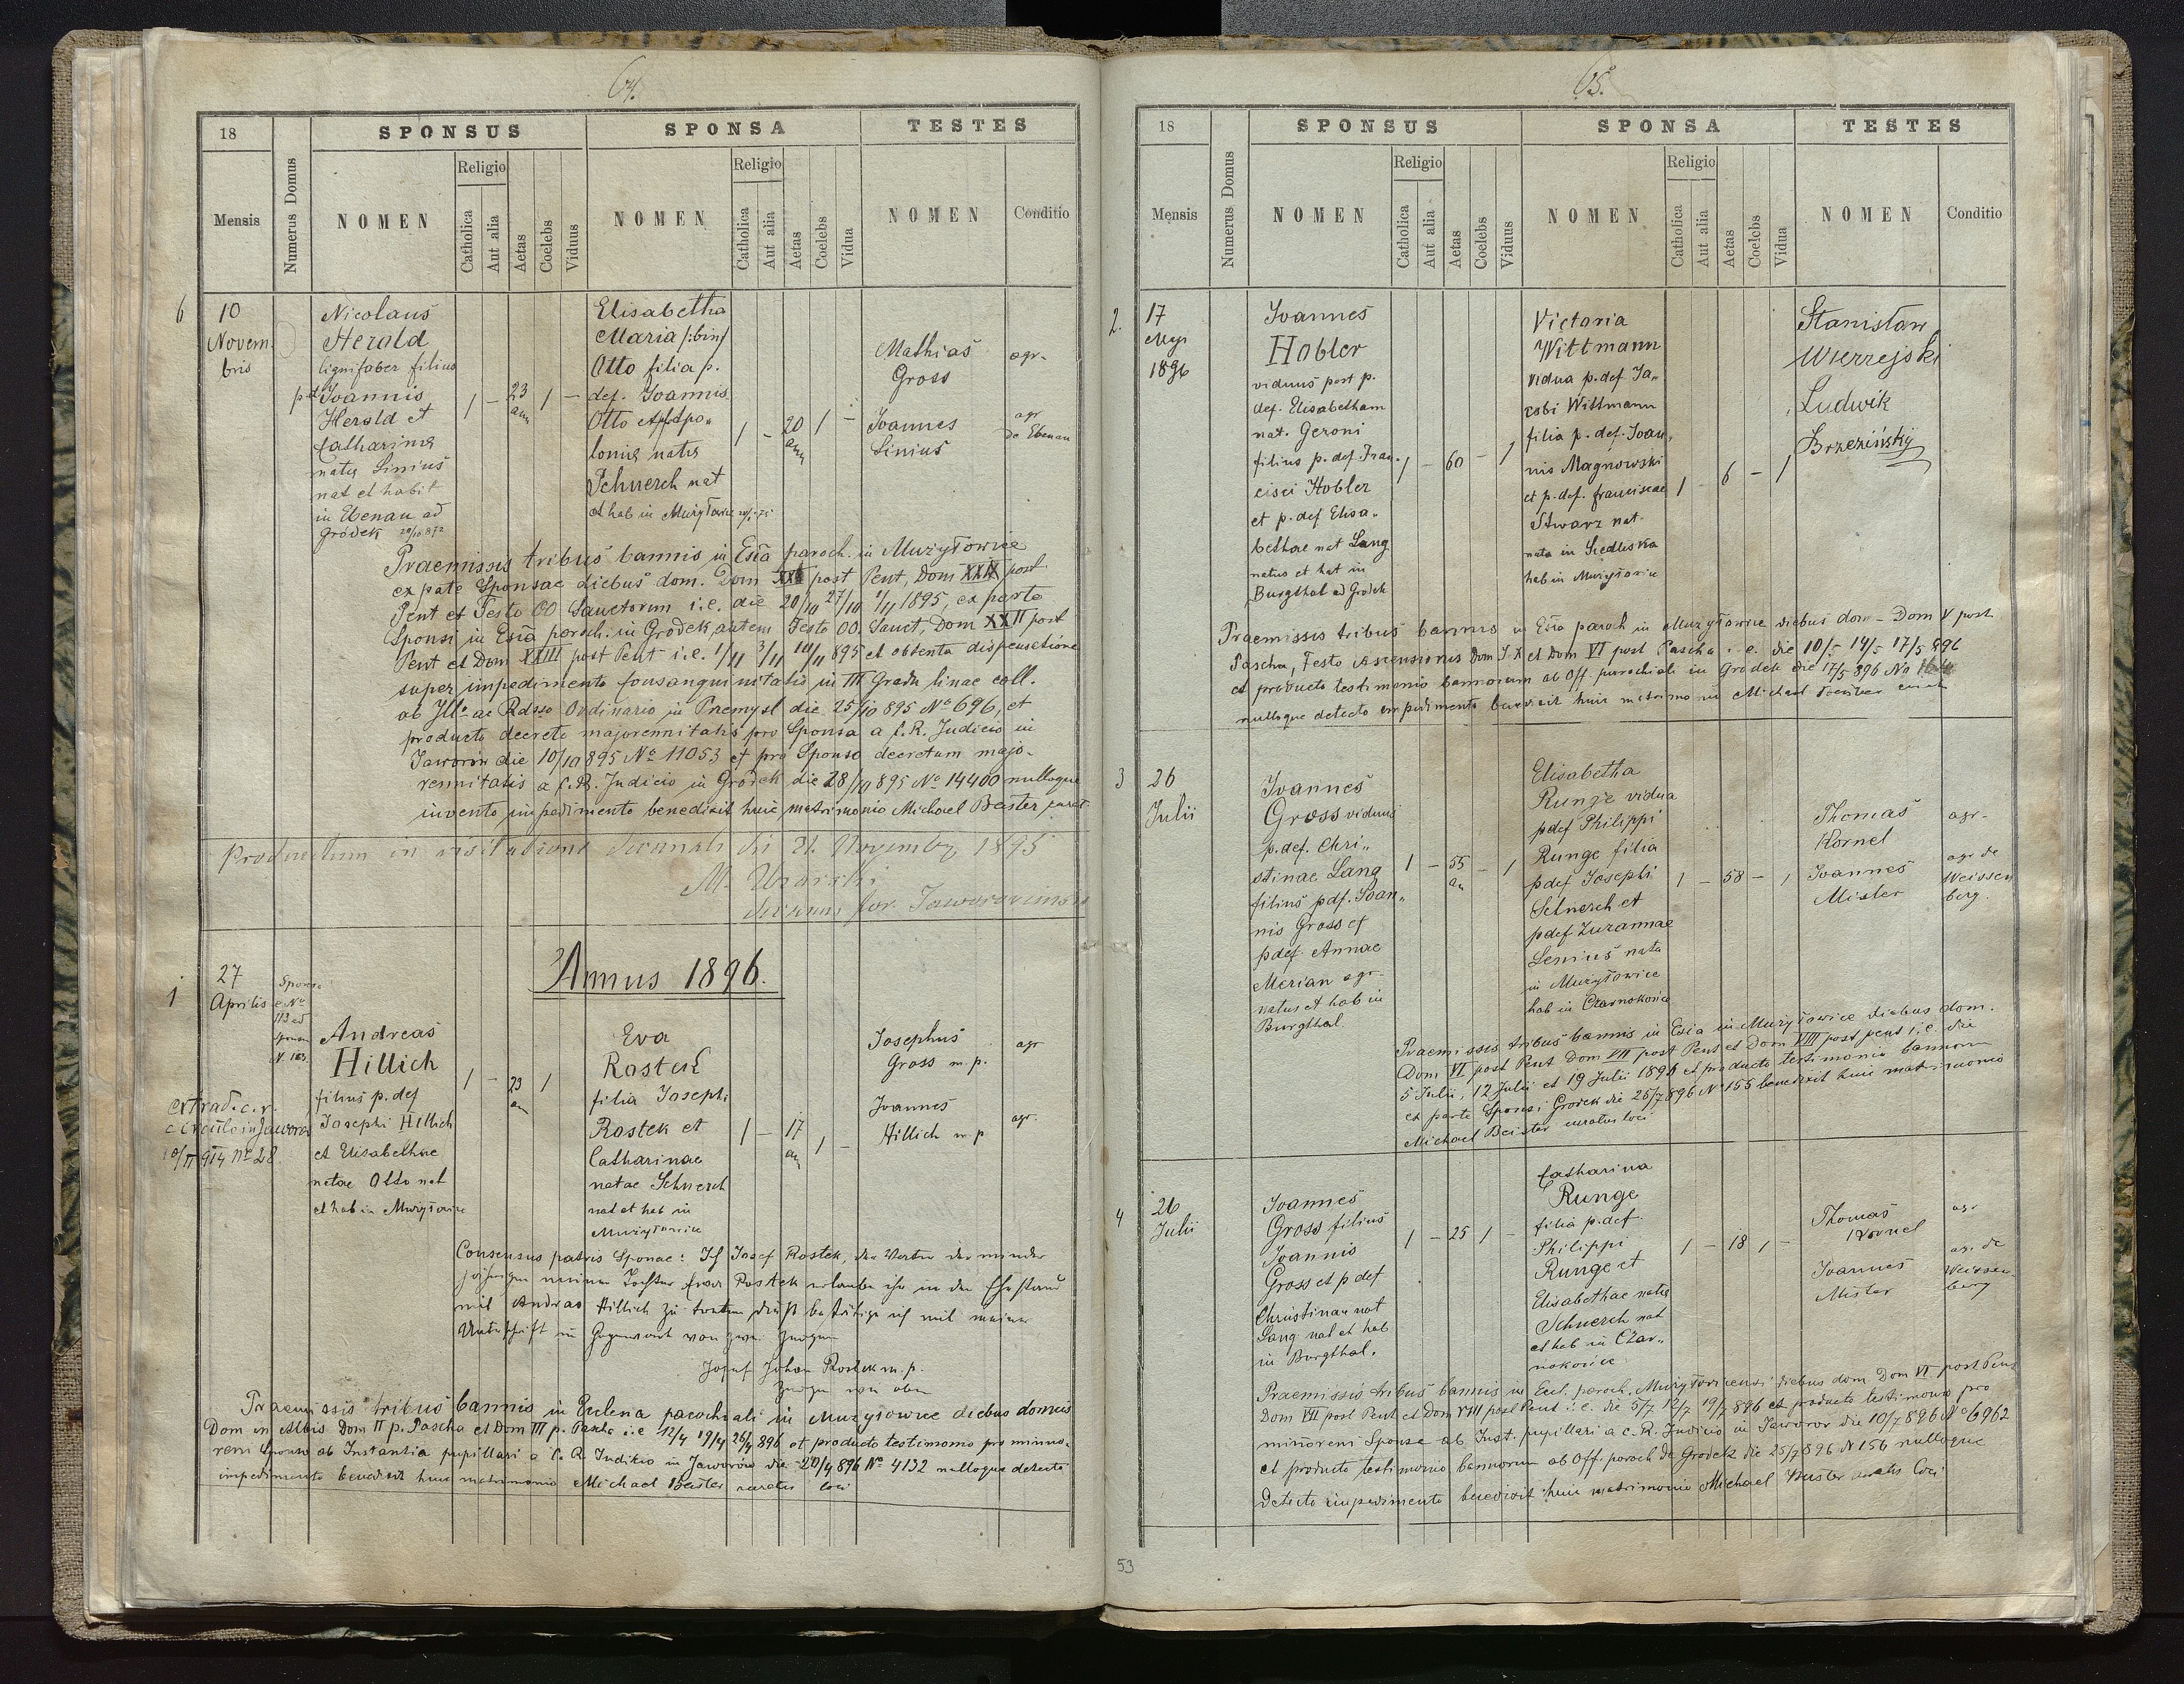 64.
18
SPONSUS
SPONSA
TESTES
Mensis
Numerus Domus
NOMEN
Religio
Catholica
Aut alia
Aetas
Coelebs
Viduus
NOMEN
Religio
Catholica
Aut alia
Aetas
Coelebs
Vidua
NOMEN
Conditio
6
10
Novem
bris
Nicolaus
Herold
lignifaber filius
p.d Joannis
Herold et
Catharinae
natae Linius
nat et habit
in Ebenau ad
Gródek
1 – 23 1 –
an
Elisabetha
Maria /:bin/
Otto filia p.
def. Joannis
Otto et Apo„
loniae natae
Schnerch nat
et hab in Mużyłowice
1 – 20 1 –
an
Mathias agr.
Gross
Joannes agr
Linius de Ebenau
Praemissis tribus bannis in Ecsia paroch. in Mużyłowice
ex parte Sponsae diebus dom. Dom post Pent, Dom post
Pent et Festo OO Sanctorum i.e. die 20/10 27/10 1/11 1895, ex parte
Sponsi in Ecsia paroch. in Grodek, autem Festo OO. Sanct, Dom XXII post
Pent et Dom XXIII post Pent i.e. 1/11 3/11 10/11 895 et obtenta dispensatione
super impedimento Consanguinitatis in III Gradu linae coll.
ab Ill. ac Rdsso Ordinario in Premysl die 25/10 895 No 696, et
producto decreto majorennitatis pro Sponsa a C.R. Judicio in
Jaworów die 10/10 895 No 11053 et pro Sponso decretum majo-
rennitatis a C.R. Judicio in Gródek die 28/10 895 No 14400 nulloque
invento impedimento benedixit huic matrimonio Michael Beister curat.
Productum in visitatione decanali die 21. Novembr 1895
M.
Decanus for. Jaworoviensis
Annus 1896.
1
27
Aprilis
Sponsi
e No
113 ad
Sponsa
N. 163.
Andreas
Hillich
filius p. def
Josephi Hillich
et Elisabethae
natae Otto nat
et hab in Mużyłowice
1 – 23 1
an
Eva
Rostek
filia Josephi
Rostek et
Catharinae
natae Schnerch
nat et hab in
Mużyłowice
1 – 17 1 –
an
Josephus agr
Gross m p.
Joannes agr.
Hillich m p
extrad. c. r.
No 28
Consensus patris Sponsae: Ich Josef Rostek, der Vater der minder
jährigen meiner Tochter Eva Rostek erlaube ihr in den Ehestand
mit Andreas Hillich zu treten dieß bestätige ich mit meiner
Unterschrift in Gegenwart von zwei Zeugen
Josef Johan Rostek m. p.
Zeugen wie oben
Praemissis tribus bannis in Ecclesia parochiali in Mużyłowice diebus domcis
Dom in Albis Dom II p. Pascha et Dom III p. Pascha i.e 12/4 19/4 26/4 896 et producto testimonio pro mino-
reni Sponsa ab Instantia pupillari a C. R. Judicio in Jaworów die 20/4 896 No 4132 nulloque detecto
impedimento benedixit huic matrimonio Michael Beister curatus loci
65.
18
SPONSUS
SPONSA
TESTES
Mensis
Numerus Domus
NOMEN
Religio
Catholica
Aut alia
Aetas
Coelebs
Viduus
NOMEN
Religio
Catholica
Aut alia
Aetas
Coelebs
Vidua
NOMEN
Conditio
2.
17
1896
Joannes
Hobler
viduus post p.
def. Elisabetham
nat. Geroni
filius p. def Fran-
cisci Hobler
et p. def Elisa„
bethae nat Lang
natus et hat in
Burgthal ad Grodek
1 – 60 – 1
Victoria
Wittmann
vidua p. def Ja„
cobi Wittmann
filia p. def. Joan„
nis Magnowski
et p. def. Franciscae
Stwarz nat.
nata in Siedliska
hab in Mużyłowice
1 – 6 – 1
Stanisław
Wierzejski
Ludwik
Brzeziński
Praemissis tribus bannis in Ecsia paroch in Mużyłowice diebus dom – Dom V post
Pascha, Festo Ascensionis Dom J. X et Dom VI post Pascha i. e. die 10/5 14/5 17/5 896
et producto testimonio bannorum ab Off. parochiali in Grodek die 17/5 896 No
nulloque detecto impedimento benedixit huic matrimonio Michael Beister curat
3
26
Julii
Joannes
Gross viduus
p. def. Chri„
stinae Lang
filius pdf. Joan„
nis Gross et
pdef Annae
Merian agr.
natus et hab in
Burgthal
1 – 55 – 1
an
Elisabetha
Runge vidua
pdef Philippi
Runge filia
pdef Josephi
Schnerch et
pdef Zuzannae
Lenius nata
in Mużyłowice
hab in Czarnokońce
1 – 58 – 1
Thomas agr.
Kornel
Joannes agr de
Mister Weissen
berg.
Praemissis tribus bannis in Ecsia in Mużyłowice diebus dom.
Dom VI post Pent Dom VII post Pent et Dom VIII post pent i.e. die
5 Julii, 12 Julii et 19 Julii 1896 et producto testimonio bannorum
ex parte Sponsi Grodek die 25/7 896 No 155 benedixit huic matrimonio
Michael Beister curatus loci
4
26
Julii
Joannes
Gross filius
Joannis
Gross et p def
Christinae nat
Lang nat et hab
in Burgthal.
1 – 25 1 –
Catharina
Runge
filia p. def
Philippi
Runge et
Elisabethae natae
Schnerch nat
et hab in Czar„
nokońce
1 – 18 1 –
Thomas agr
Kornel
Joannes agr. de
Mister Weissen-
berg
Praemissis tribus bannis in Eccl. paroch. Mużyłovicensi diebus dom Dom VI post Pent
Dom VII post Pent et Dom VIII post Pent i. e. die 5/7 12/7 19/7 896 et producto testimonio pro
minoreni Sponsa ab Inst. pupillari a C. R. Judicio in Jaworow die 10/7 896 No 6962
et producto testimonio bannorum ab Off. paroch de Grodek die 25/7 896 N 156 nulloque
detecto impedimento benedixit huic matrimonio Michael Beister curatus loci
53